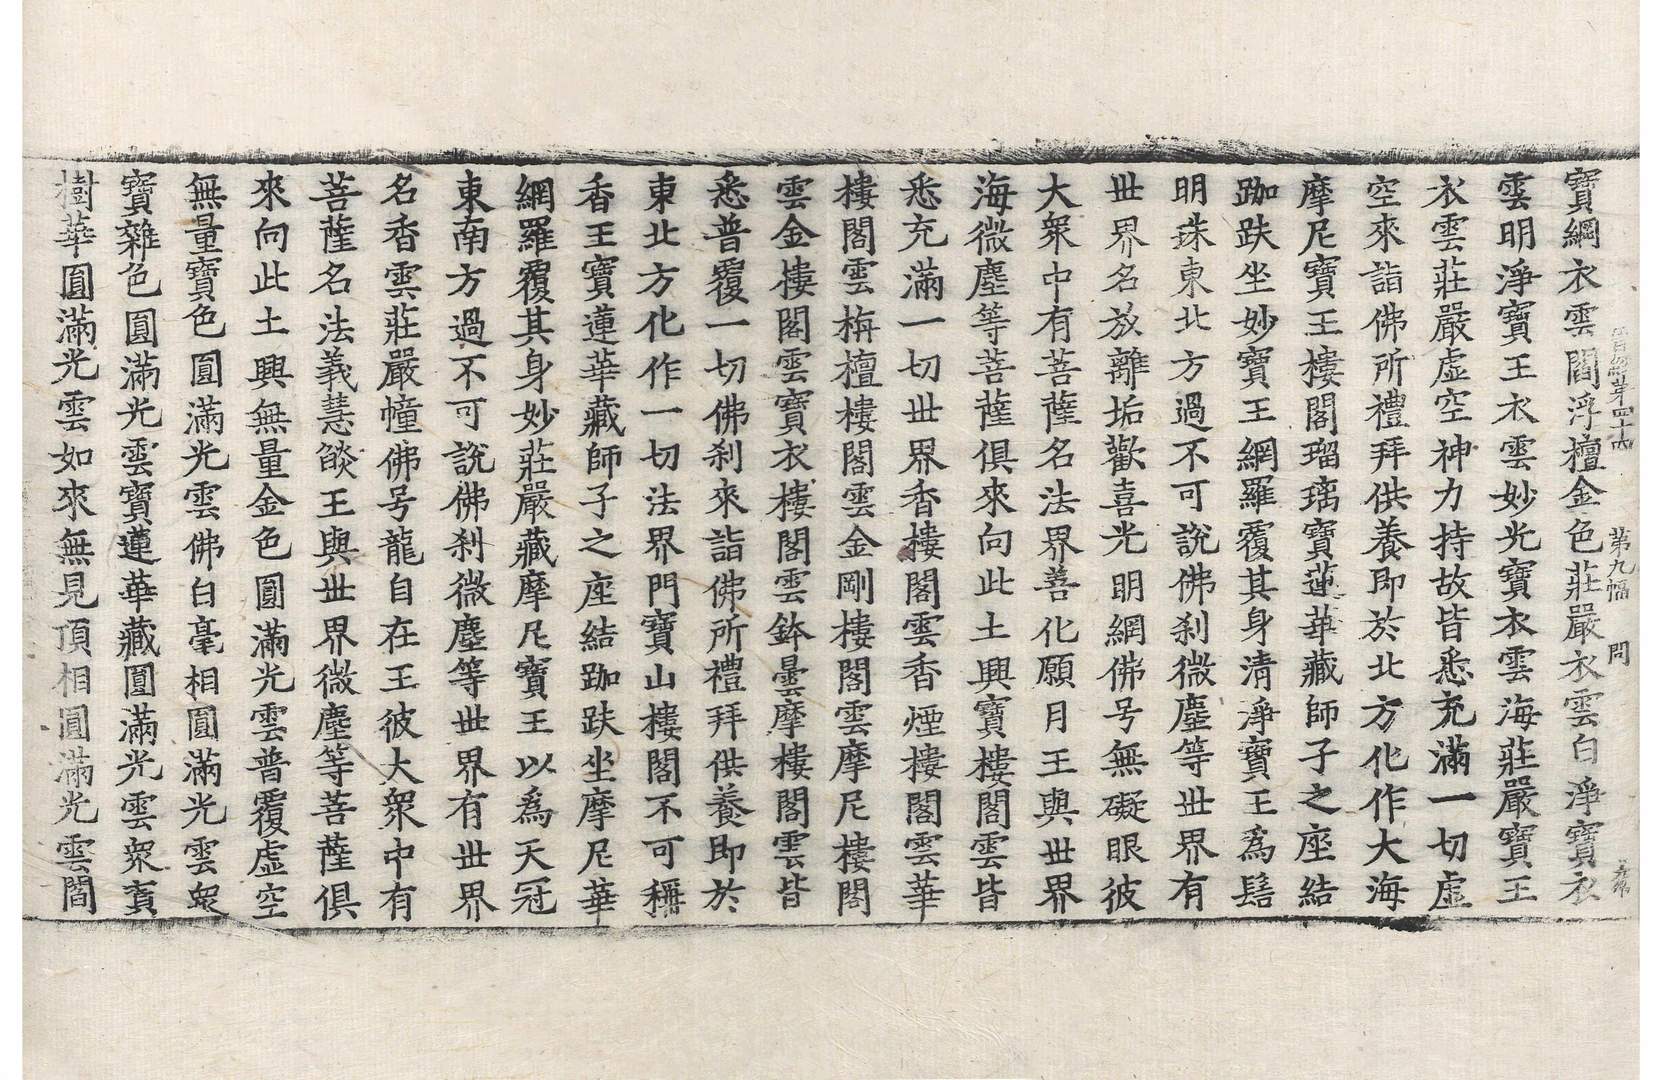 第九幅 問
寶綱衣雲閻浮檀金色莊嚴衣雲白淨寶衣
雲明淨寶王衣雲妙光寶衣雲海莊嚴寶王
衣雲莊嚴虛空神力持故皆悉充滿一切虛
空來詣佛所禮拜供養即於北方化作大海
摩尼寶王樓閣瑠璃寶蓮華藏師子之座結
跏趺坐妙寶王網羅覆其身清淨寶王爲髻
明珠東北方過不可說佛剎微塵等世界有
世界名放離垢歡喜光明網佛号無礙眼彼
大衆中有菩薩名法界善化願月王與世界
海微塵等菩薩俱來向此土興寶樓閣雲皆
悉充滿一切世界香樓閣雲香煙樓閣雲華
樓閣雲栴檀樓閣雲金剛樓閣雲摩尼樓閣
雲金樓閣雲寶衣樓閣雲鉢曇摩樓閣雲皆
悉普覆一切佛剎來詣佛所禮拜供養即於
東北方化作一切法界門寶山樓閣不可稱
香王寶蓮華藏師子之座結跏趺坐摩尼華
網羅覆其身妙莊嚴藏摩尼寶王以爲天冠
東南方過不可說佛剎微塵等世界有世界
名香雲莊嚴幢佛号龍自在王彼大衆中有
菩薩名法義慧燄王與世界微塵等菩薩俱
來向此土興無量金色圓滿光雲普覆虛空
無量寶色圓滿光雲佛白毫相圓滿光雲衆
寶雜色圓滿光雲寶蓮華藏圓滿光雲衆寶
樹華圓滿光雲如來無見頂相圓滿光雲閻